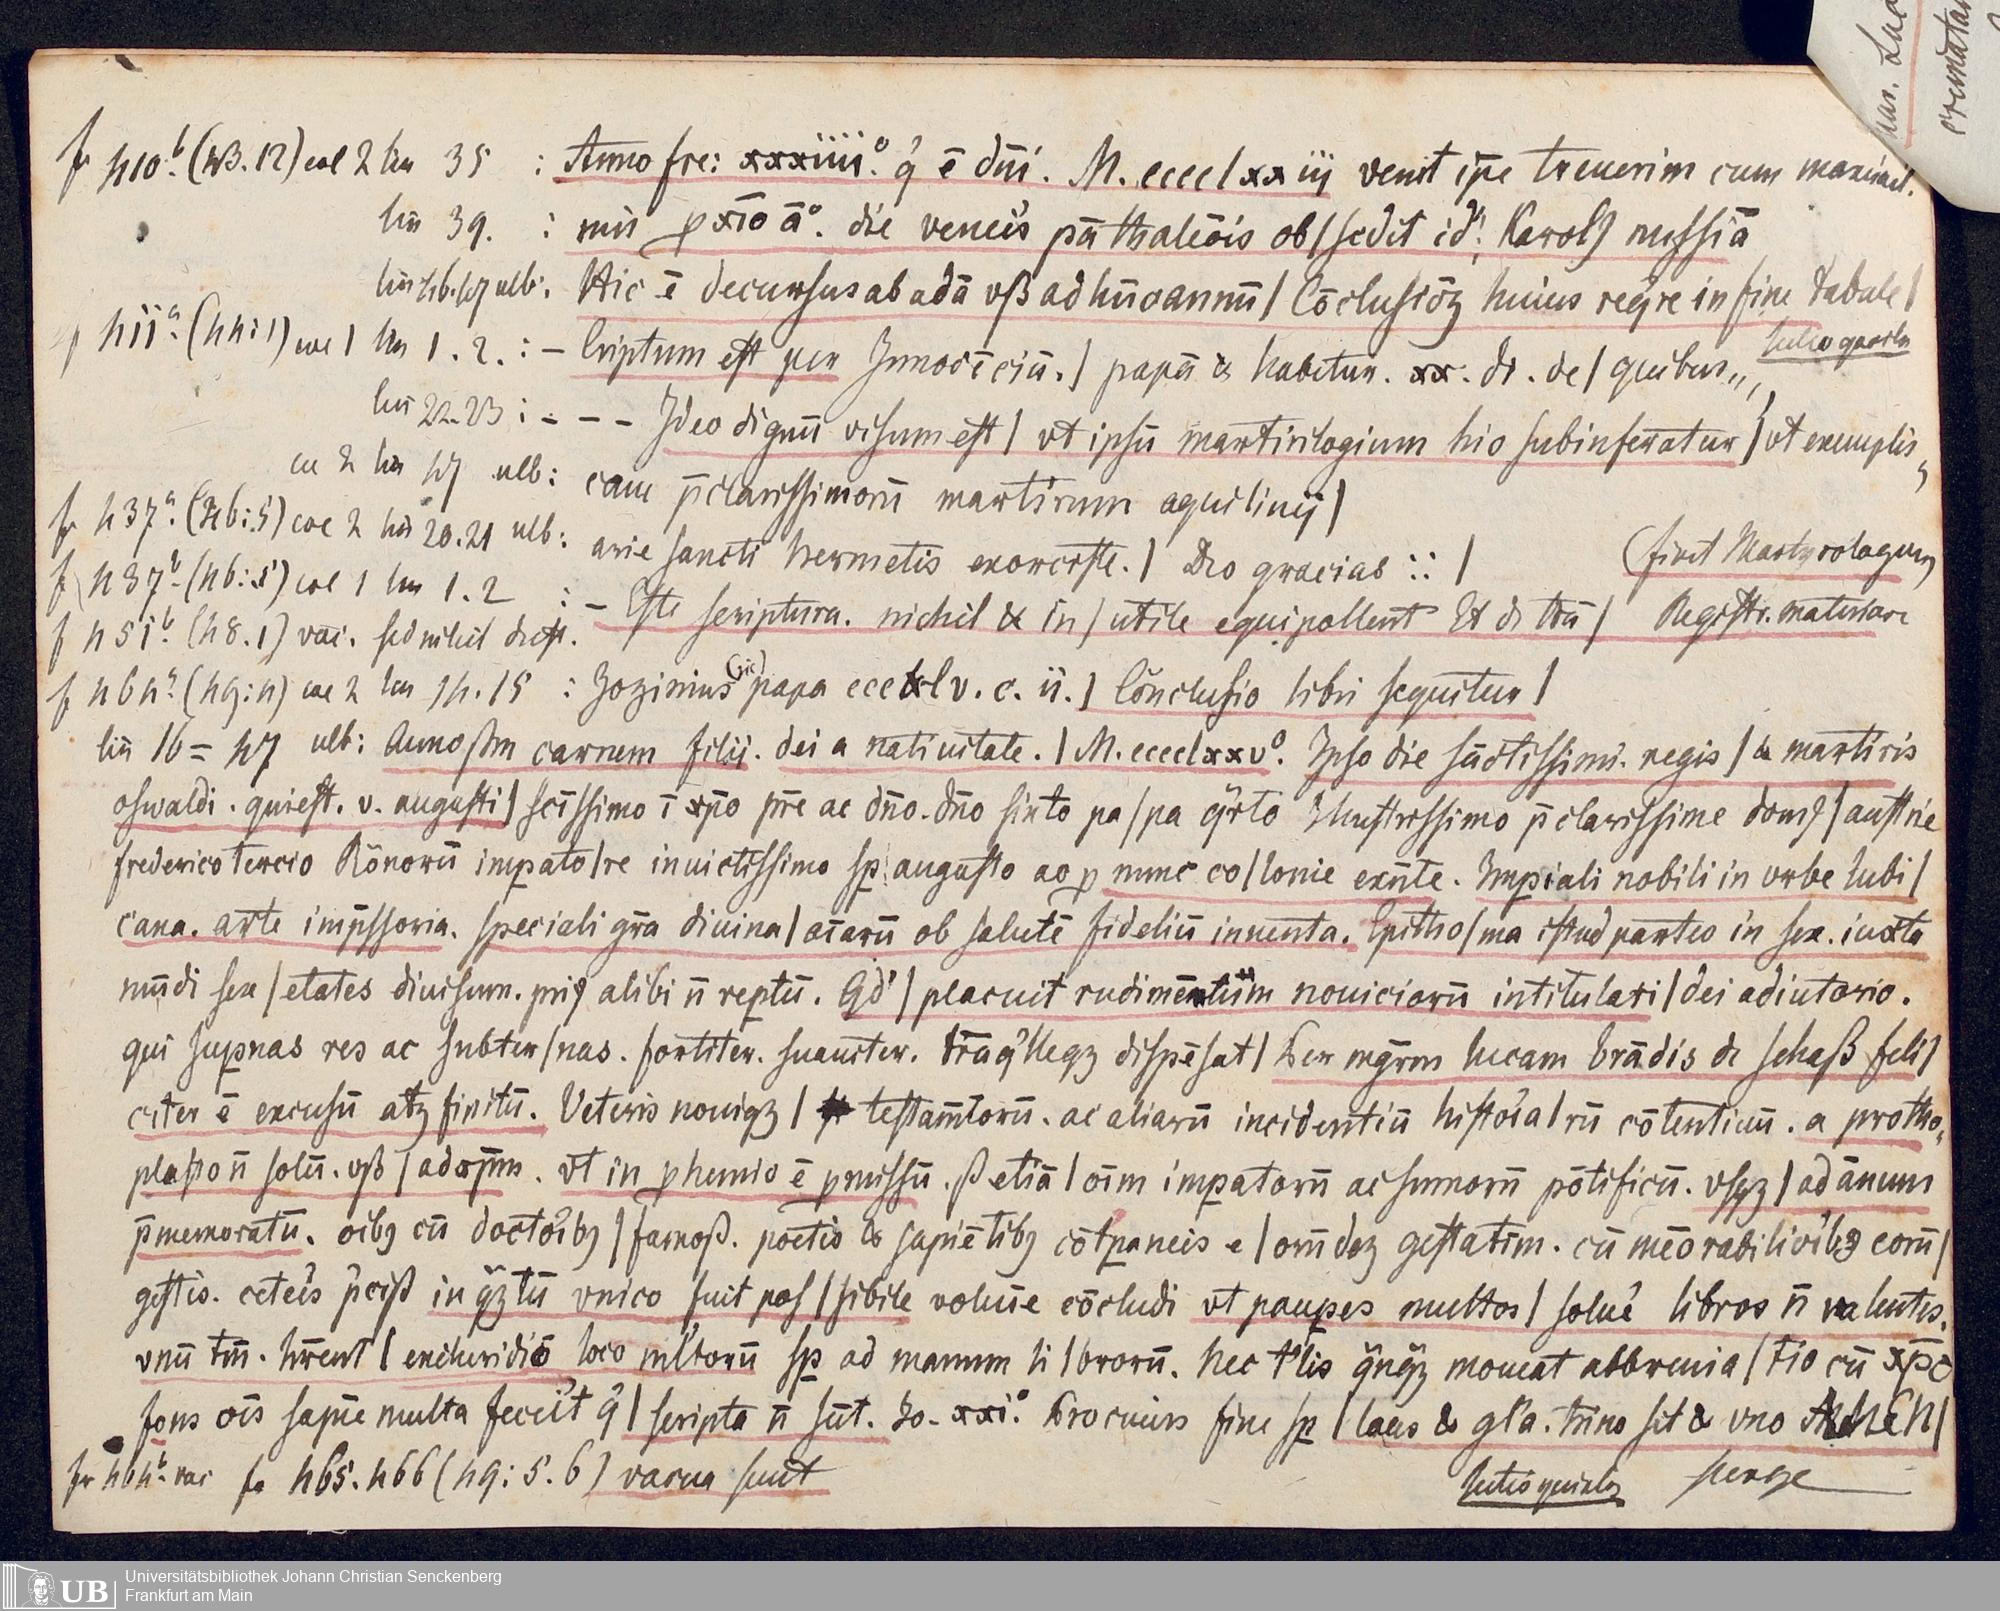 f 410.b (43.12) col 2 lin 35 : Anno fre: xxxiiii.o q̓ ē dn̄i. M. cccclxxiij venit ip̄e treuerim cum maximil.
lin 39. : nus p xīo ā.o die veneis pāthaleōis ob/sedit id'. Karolꝰ nussiā
lin 46.47 ulb: Hic ē decursus ab adā vsß ad hūc annū/ Cōclusiōꝫ huius req̓re in fine tabule/
f 411.a (44:1) col 1 lin 1.2.: – Criptum est per Innocēciū./ papā & habetur. xx. di. de/ quibus
lin 22-23 : - - - Ideo dignū visum est/ vt ipsū martirilogium hic subinferatur/ vt exemplis
col 2 lin 47 ulb: cane p̄clarissimorū martirum aquilinij/
f 437.a (46:5) col 2 lin 20.21 ulb: arie sancti hermetis exorciste./ Deo gracias ::/ (finit Martyrologium)
f 437.b (46:5) col 1 lin 1.2 : – Iste scriptura. nichil & in/utile equipollent Et di tn̄/ Registr. materiare
f 451.b (48.1) vac. sed nihil deest.
f 464.a (49:4) col 2 lin 14.15 : Zozimus (sic) papa ccclv. c. ii./ Cōnclusio libri sequitur/
lin 16 = 47 ulb: Anno ßm carnem filij. dei a natiuitate./ M.cccclxxvo. Ipso die sāctissimi. regis/ & martiris
oswaldi. qui est. v. augusti/ scīssimo ī xp̄o pr̄e ac dn̄o. dn̄o sixto pa/pa q̓rto Illustrissimo p̄clarissime domꝰ/ austrie
frederico tercio Rōnorū impato/re inuictissimo sp augusto ac p nunc co/lonie exn̄te. Impiali nobili in vrbe lubi/
cana. arte imp̄ssoria. speciali gr̄a diuina/ aīarū ob salutē fideliū inuenta. Epitho/ma istud partes in sex. iuxta
mūdi sex/ etates diuisum. priꝰ alibi n̄ reptū. Qd'/ placuit rudimentum nouiciorū intitulari/ dei adiutorio.
qui supnas res ac subter/nas. fortiter. suauiter. trāq̓lleqꝫ dispēsat/ Per mgr̄m lucam brādis de schaß feli/
citer ē excusū atqꝫ finitū. Veteris nouiqꝫ/ testamētorū. ac aliarū incidentiū histoŕia/rū cōtentiuū. a protho-
plasto n̄ solū. vsß/ ad xp̄m. vt in phemio ē pmissū. ß etiā/ oīm impatorū ac sumorū pōtificū. vsqꝫ/ ad ānum
p̄memoratū. oibꝰ cū doctoŕibꝰ/ famosß. poetis & sapiētibꝰ cōtpaneis e/orūdeꝫ gesta tm̄. cū mēorabilioŕibꝫ eorū/
gestis. ceteis p̓cisß in q̓ꝫtū vnico fuit pos/sibile volum̄e cōcludi vt paupes multos/ solue libros n̄ valentes.
vnū tm̄. hr̄ent/ enchiridiō loco ml̓torū sp ad manum li/brorū. Nec t'lis q̓nq̓ꝫ moueat abbreuia/tio cū xp̄c
fons oīs sapīe multa feceit q̓/ scripta n̄ sūt. Jo. xxi.o Procuius fine sp/ laus & gl̓a. trino sit & vno AMEN/
f 464.b vac f 465. 466 (49:5.6) vacua sunt